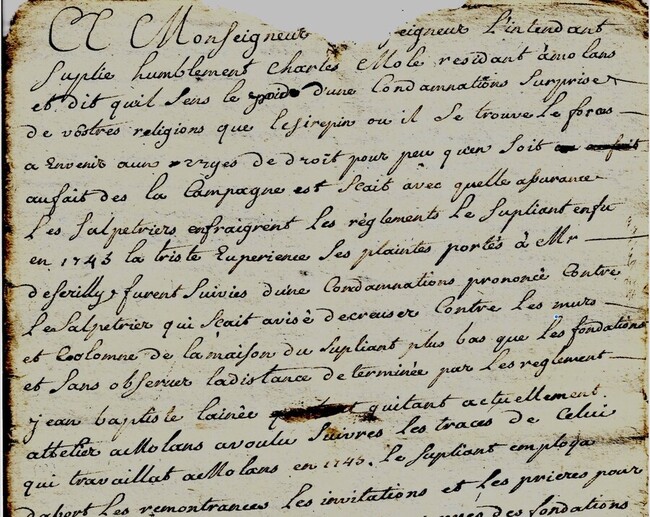 A Monseigneur eigneur L'intendant
Suplie humblement Charles Mole residant à molans
et dit quil Sens le poids d'une Condamnations Surprise
de vostres religions que Lesirepin ou il Se trouve Le forces
a Envenir aun de droit pour peu qu'en Soit
aufait des la Campagne est Scait avec quelle assurance
Les Salpetriers enfraigrent Les règlements Le Supliant enfu
en 1743 la triste Experience Ses plaintes portés à Mr
deserilly, furent Suivies d'une Condamnations prononcé Contre
Le Salpetrier qui Scait avisé decreuser Contre Les murs
et Colomne de la maison du Supliant plus bas que Les fondations
et Sans observer ladistance determinée par Les reglement
jean baptiste lainée quitant actuellement
attelier aMolans avoulu Suivres Les traces de Celui
qui travaillat aMolans en 1743. Le Supliant employa
dabort Les remontrances Les invitations et Les prieres pour
des fondations